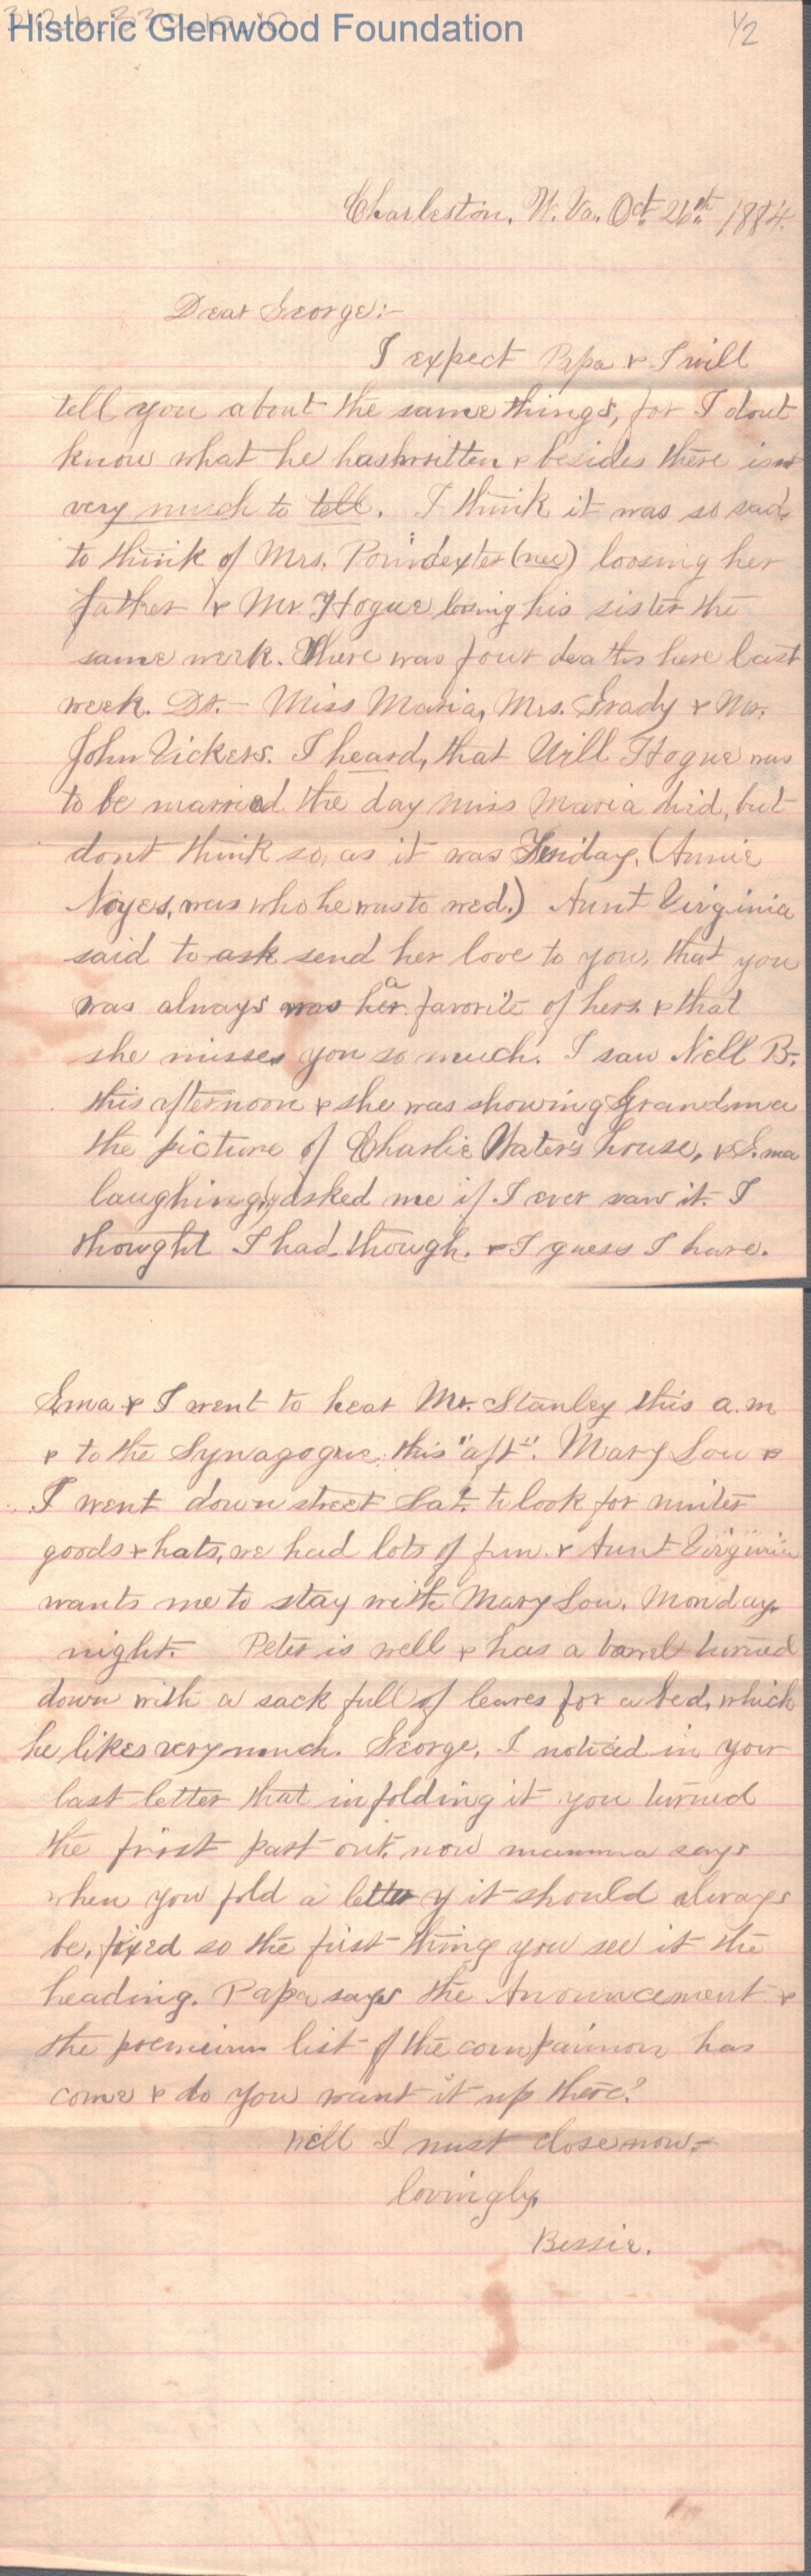 Historic Glenwood Foundation
1/2
Charleston, W. Va. Oct. 26th 1884.
Dear George:-
I expect Papa & I will
tell you about the same things, for I dont
know what he has written & besides there isnt
very much to tell. I think it was so sad,
to think of Mrs. Poindexter (nee) loosing her
father & Mr. Hogue losing his sister the
same week. There was four deaths here last
week. Dr. - Miss Maria, Mrs. Grady & Mr.
John Vickers. I heard, that Will Hogue was
to be married the day Miss Maria died, but
dont think so, as it was Friday, (Annie
Noyes, was who he was to wed.) Aunt Virginia
said to ask send her love to you, that you
was always was her a favorite of hers & that
she misses you so much. I saw Nell B.
this afternoon & she was showing Grandma
the picture of Charlie Water's house, & G.ma
laughingly asked me if I ever saw it. I
thought I had though. & I guess I have.
G.ma & I went to hear Mr. Stanley this a.m
& to the Synagogue this "aft". Mary Lou &
I went down street Sat. to look for winter
goods & hats, we had lots of fun. & Aunt Virginia
wants me to stay with Mary Lou. Monday
night. Peter is well & has a barrel turned
down with a sack full of leaves for a bed, which
he likes very much. George, I noticed in your
last letter that in folding it you turned
the first part out, now mamma says
when you fold a letter y it should always
be, fixed so the first thing you see it the
heading. Papa says the Anouncement &
the premium list of the companion has
come & do you want it up there?
Well I must close now,-
lovingly,
Bessie.